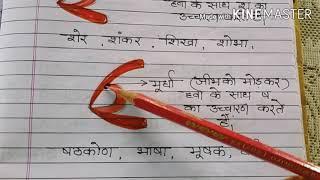 हवा के साथ श का
उच्चारण
Made With
KINEMASTER
शेर, शंकर, शिखा, शोभा,
→ मूर्धा (जीभ को मोडकर)
हवा के साथ ष
का उच्चारण करते
हैं।
षठकोण, भाषा, मूषक,